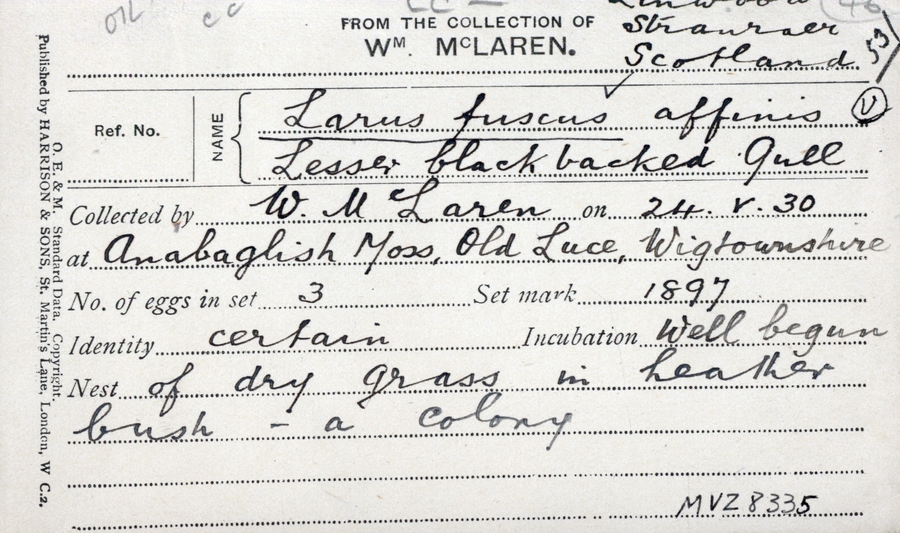 OIL
CC
46
FROM THE COLLECTION OF
Wᴹ. MᶜLAREN.
Linwood
Stranraer
Scotland
53
V
Ref. No.
NAME
Larus fuscus affinis
Lesser black backed Gull
Collected by W. McLaren on 24. V. 30
at Anabaglish Moss, Old Luce, Wigtownshire
No. of eggs in set 3 Set mark 1897
Identity certain Incubation Well begun
Nest of dry grass in heather
bush - a colony
MVZ 8335
O. E. & M. Standard Data. Copyright.
Published by HARRISON & SONS, St. Martin's Lane, London, W C.2.